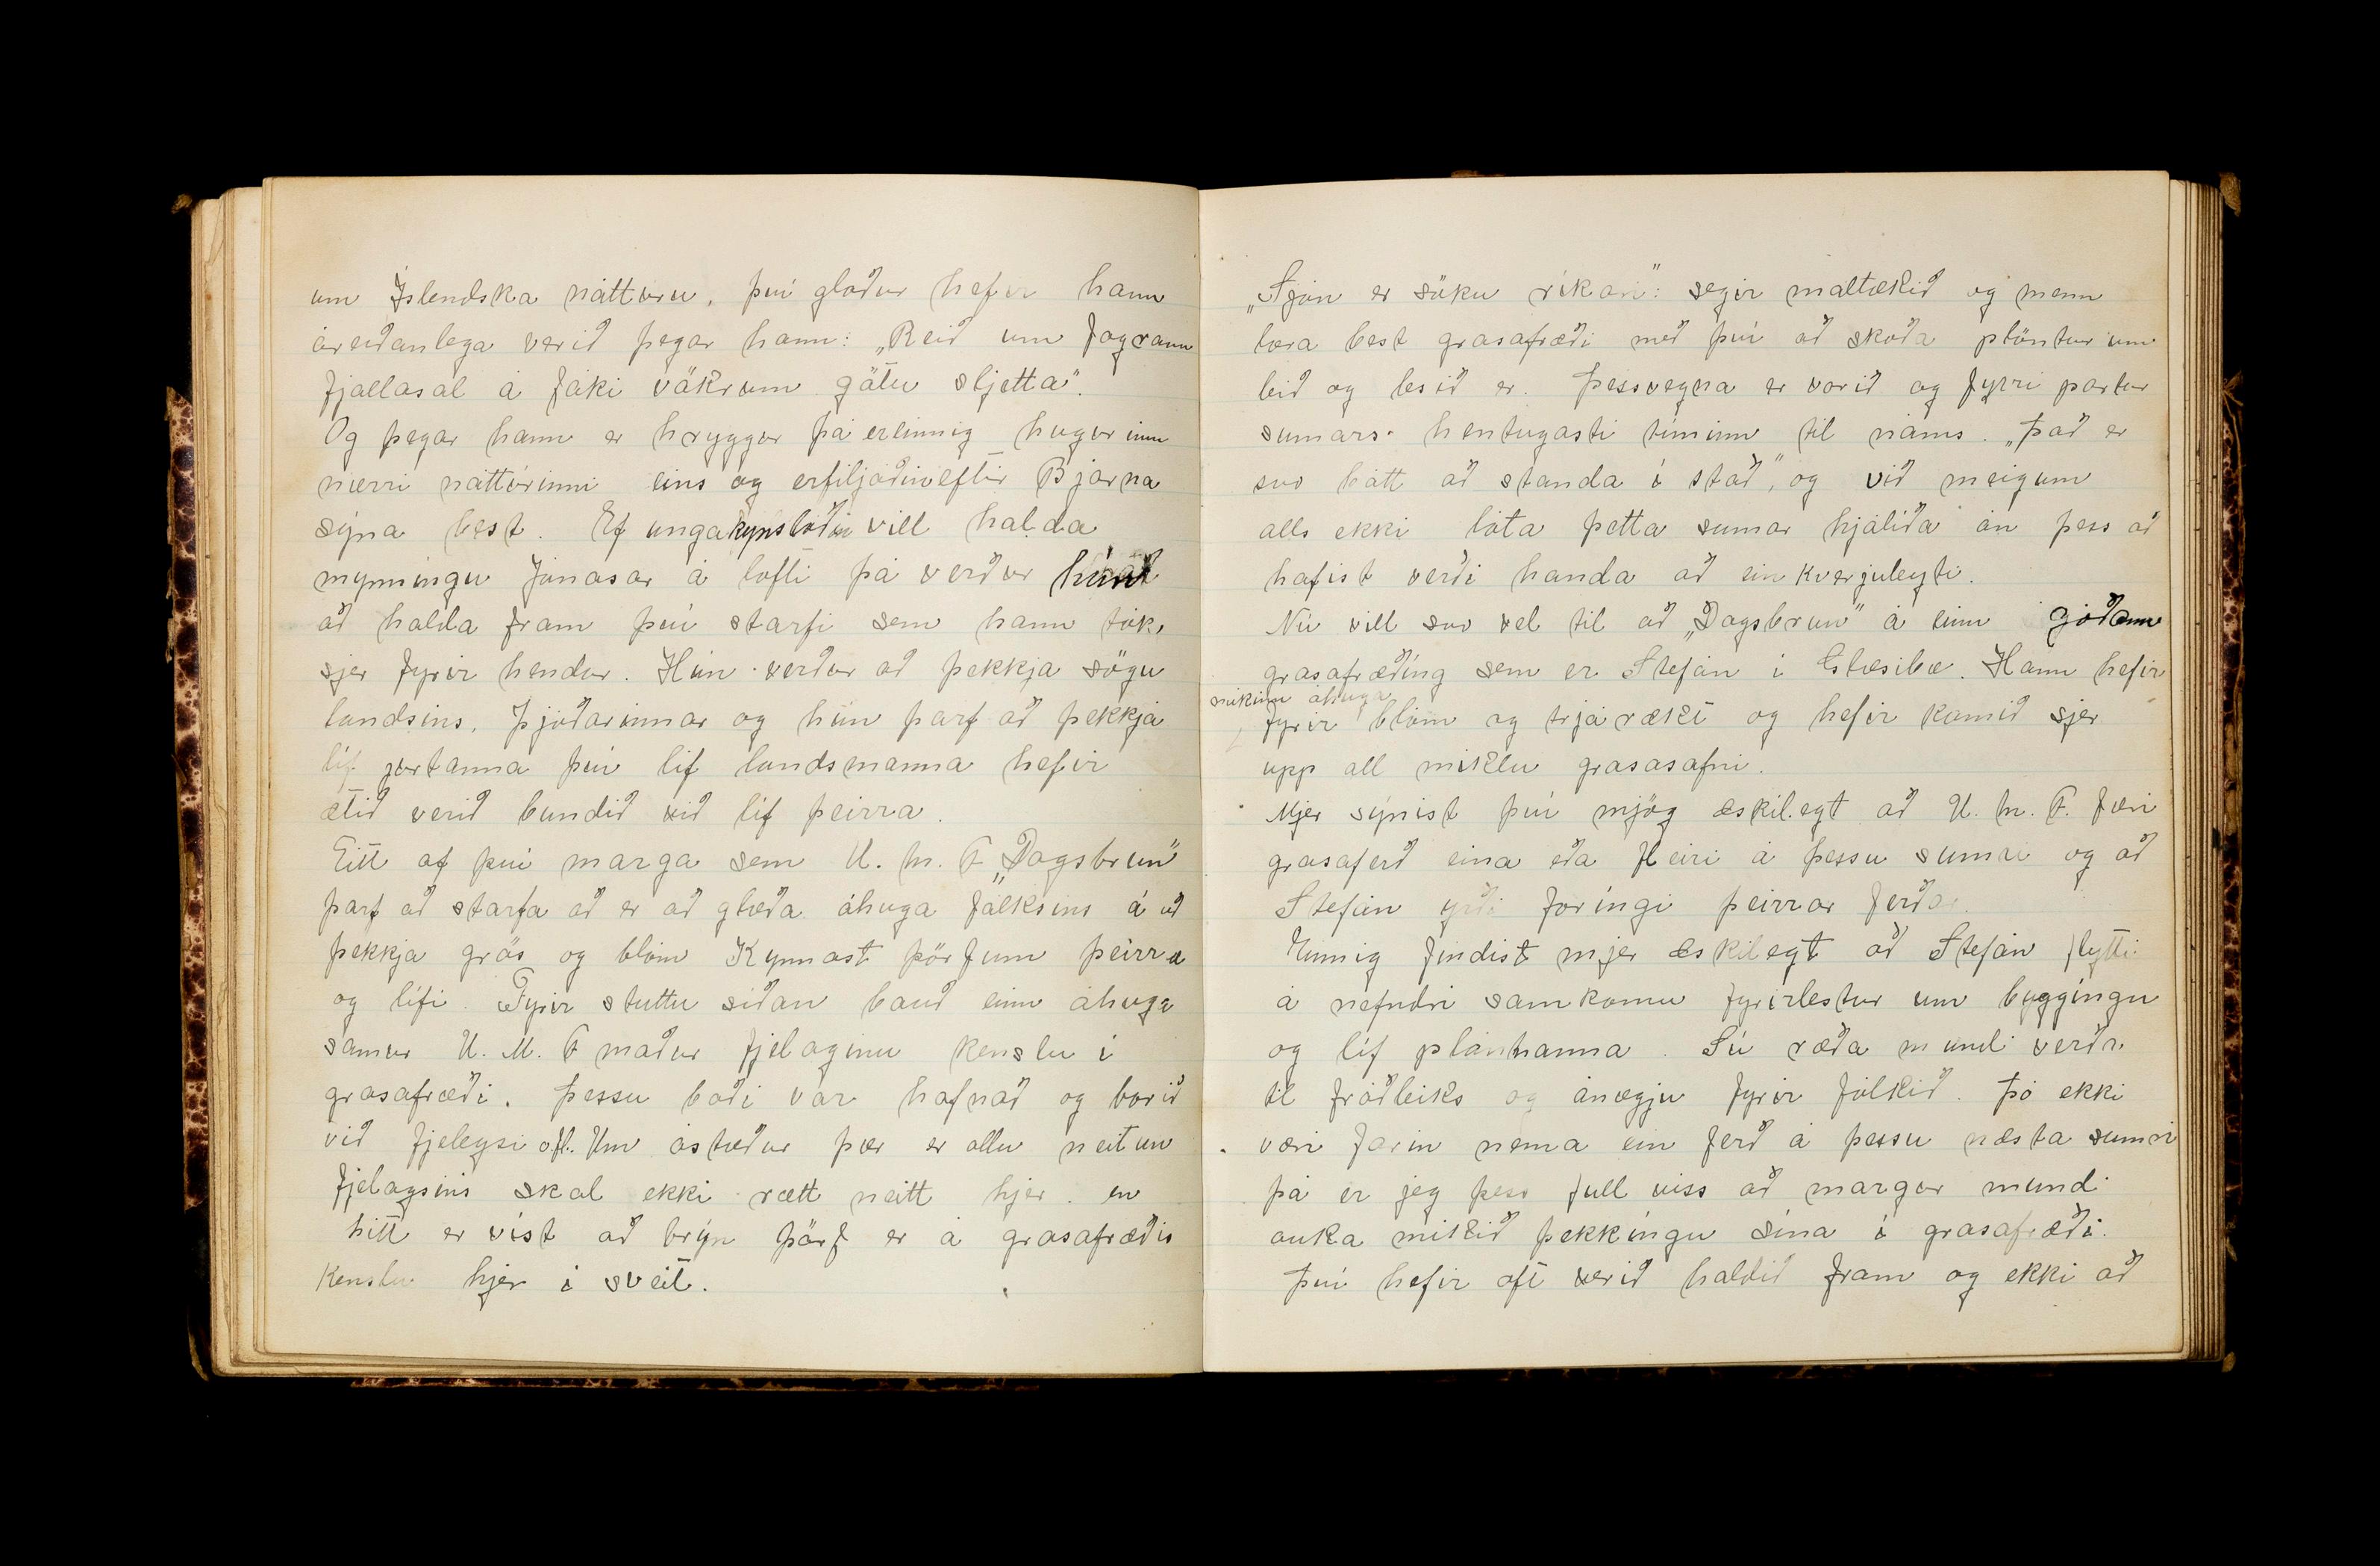 um Íslendska náttúru, því glaður hefir hann
áreiðanlega verið þegar hann: „Reið um fagrann
fjallasal á fáki vökrum götu sljetta".
Og þegar hann er hryggur þá er einnig hugurinn
nærri náttúrinni eins og erfiljóðin eftir Bjarna
sýna best. Ef unga kynslóðin vill halda
mynningu Jónasar á lofti þá verður hún
að halda fram því starfi sem hann tók
sjer fyrir hendur. Hún verður að þekkja sögu
landsins, þjóðarinnar og hún þarf að þekkja
líf jurtanna því líf landsmanna hefir
ætið verið bundið við líf þeirra.
Eitt af því marga sem U. m. F. „Dagsbrun"
þarf að starfa að er að glæða áhuga fólksins á að
þekkja grös og blóm Kynnast þörfum þeirra
og lífi. Fyrir stuttu síðan bauð einn áhuga
samur U. M. F maður fjelaginu kenslu í
grasafræði. Þessu boði var hafnað og borið
við fjeleysi o.fl. Um ástæður þær er ollu neitun
fjelagsins skal ekki rætt neitt hjer. en
hitt er víst að brýn þörf er á grasafræðis
Kenslu hjer í sveit.
„Sjón er söku ríkari": segir máltækið og menn
læra best grasafræði með því að skoða plöntur um
leið og lesið er. Þessvegna er vorið og fyrri partur
sumars hentugasti tíminn til náms. „Það er
svo bátt að standa í stað", og við meigum
alls ekki láta þetta sumar hjálíða án þess að
hafist verði handa að einkverjuleyti.
Nú vill svo vel til að „Dagsbrun" á einn góðann
grasafræðing sem er Stefán í Eistæsibæ. Hann hefir
mikinn áhuga
fyrir blóm og trjáræki og hefir komið sjer
upp all miklu grasasafni.
Mjer sýnist því mjög æskilegt að U. m. F. færi
grasaferð eina eða fleiri á þessu sumri og að
Stefán yrði foringi þeirrar ferðar.
Einnig findist mjer æskilegt að Stefán flytti
á nefndri samkomu fyrirlestur um byggíngu
og líf plántanna. Sú ræða mundi verða
til fróðleiks og ánægju fyrir fólkið. Þó ekki
væri farin nema ein ferð á þessu næsta sumri
þá er jeg þess full viss að margur mundi
auka mikið þekkíngu sína í grasafræði.
Því hefir oft verið haldið fram og ekki að